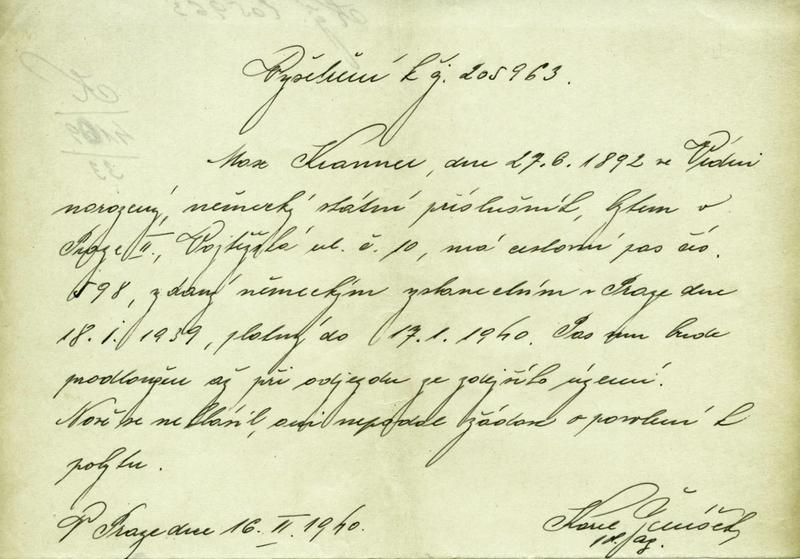 Vyšetření k čj. 205963.
Max Kranner, dne 27.6. 1892 ve Vídni
narozený, německý státní příslušník, bytem v
Praze II., Vojtěšská ul. č. 10, má cestovní pas čís.
598, vydaný německým vyslanectvím v Praze dne
18.1. 1939, platný do 17.1. 1940. Pas mu bude
prodloužen až při odjezdu ze zdejšího území.
Nově se nehlásil, ani nepodal žádost o povolení k
pobytu.
V Praze dne 16. II. 1940.
Karel